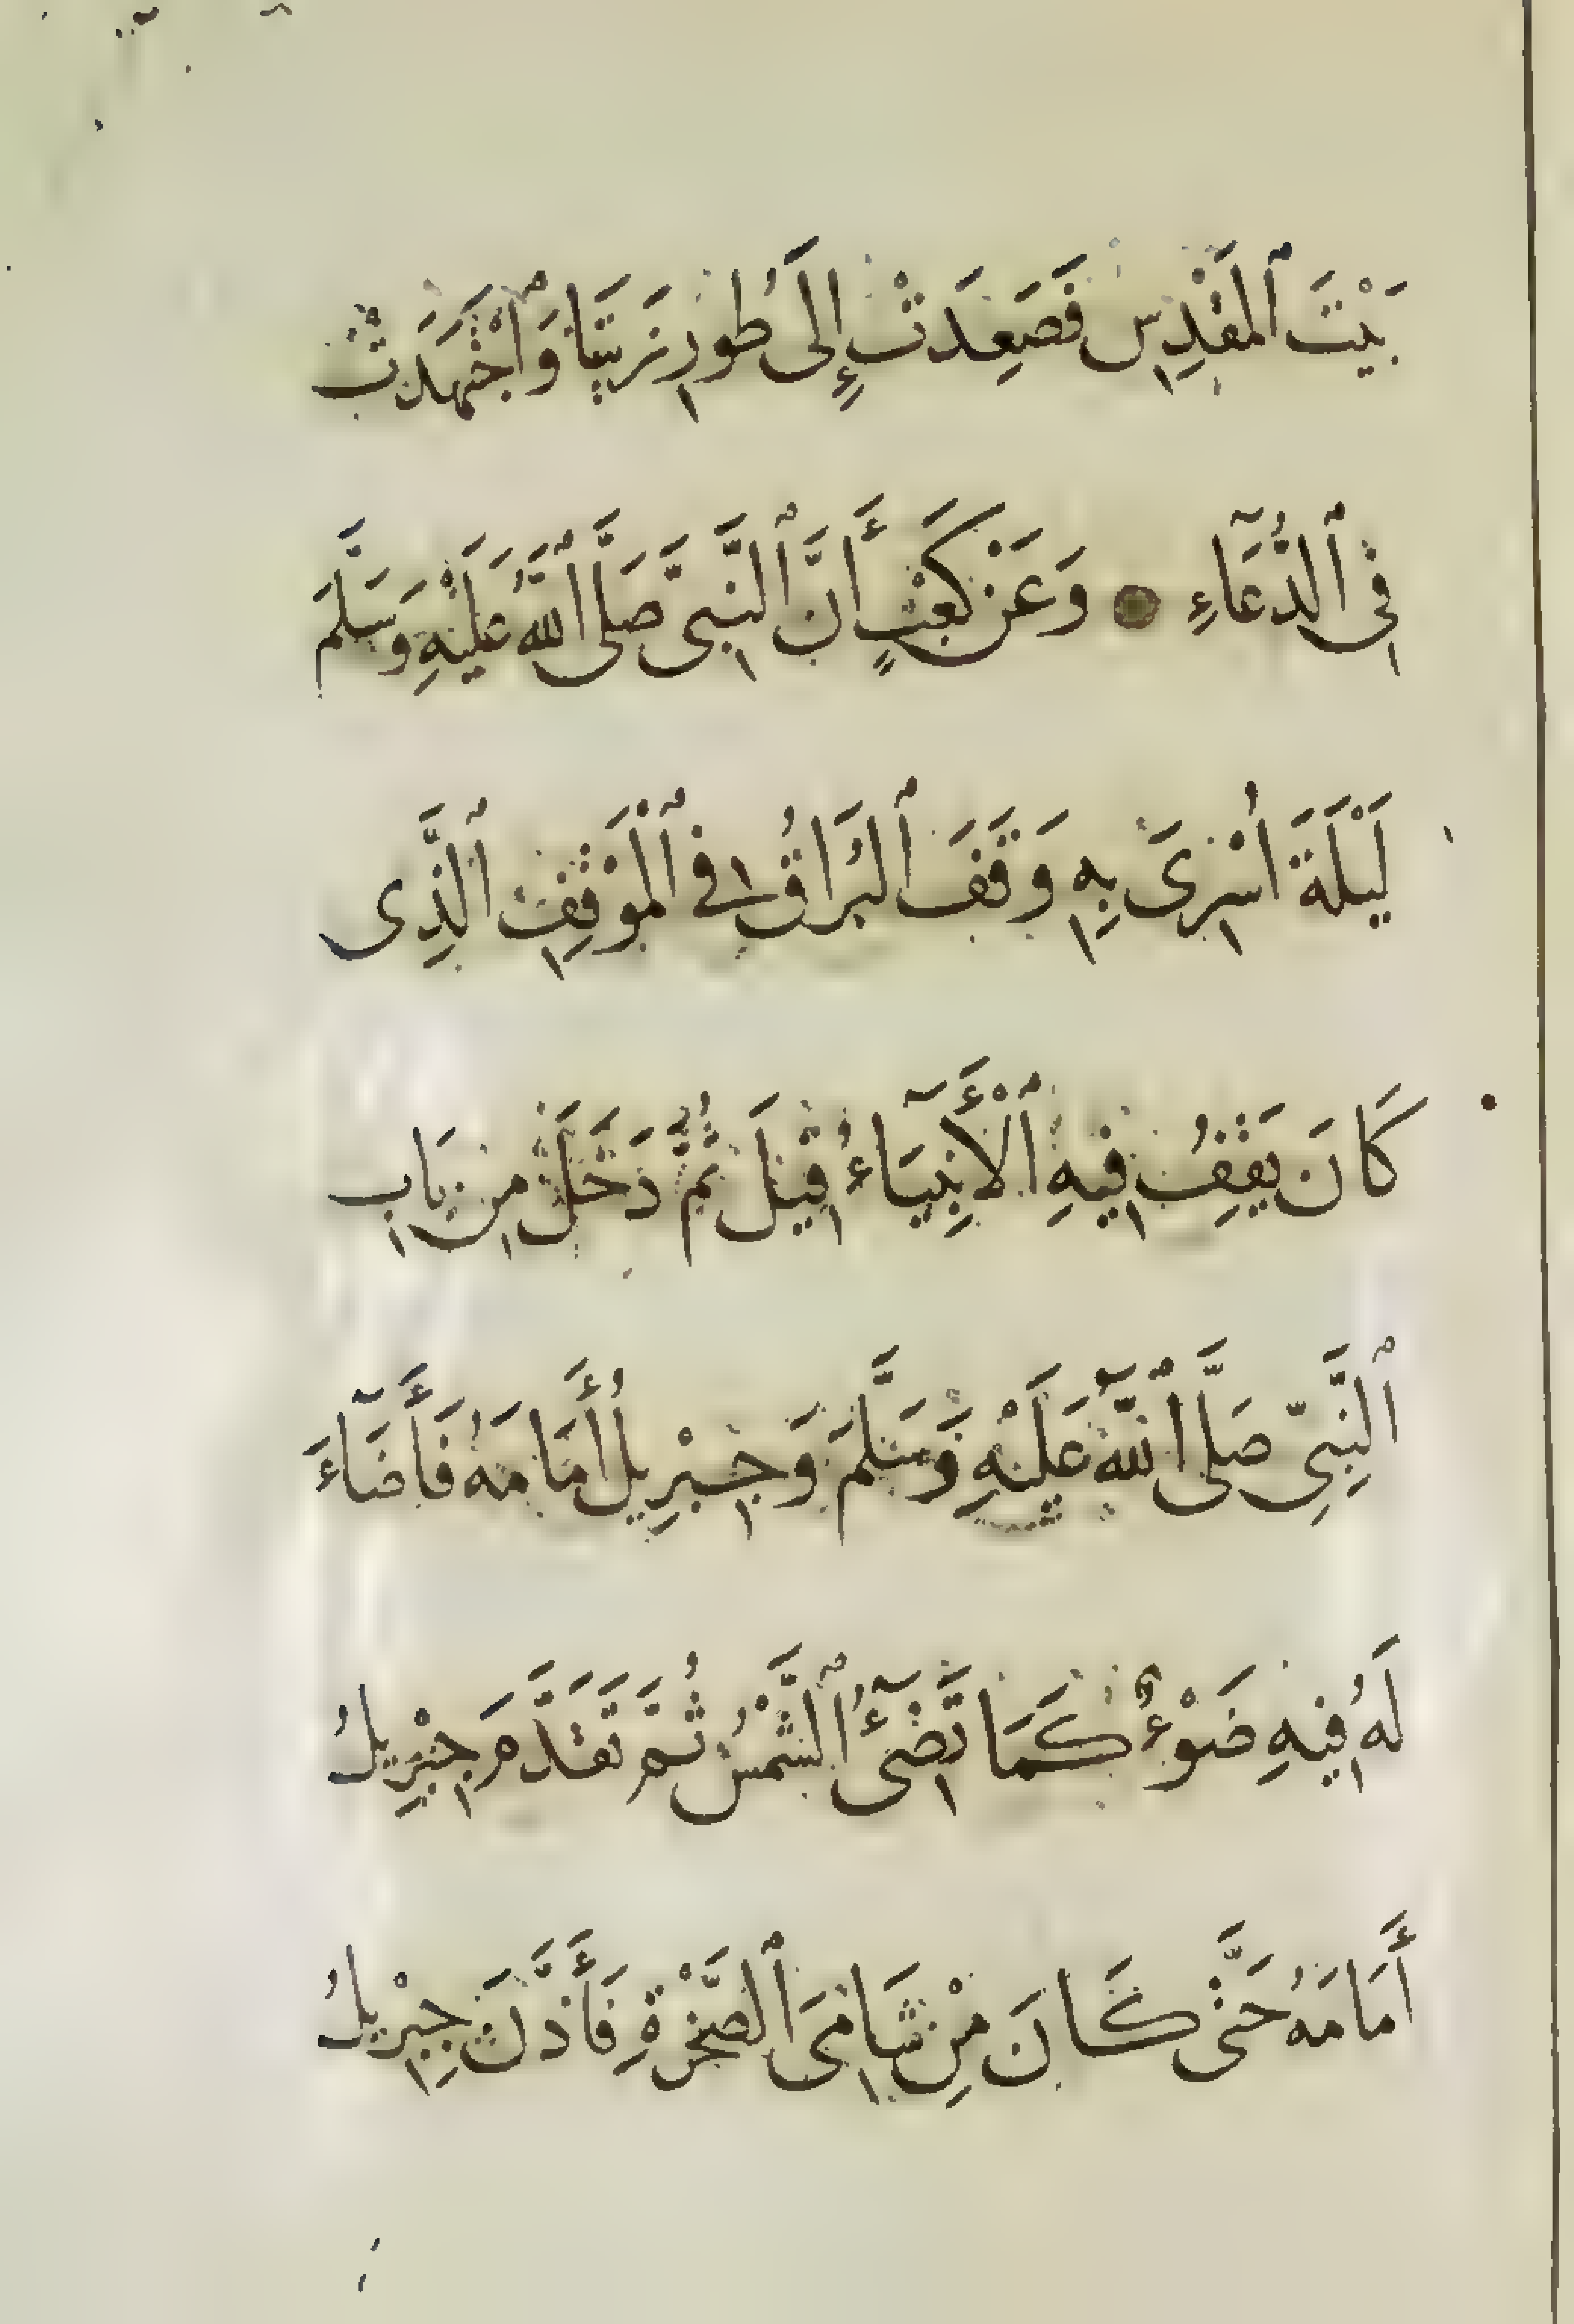 بَيْتَ ٱلمَقْدِسِ فَصَعِدَتْ إِلَى طُورِ زَيتَا وَٱجْتَهَدَتْ
فِى ٱلدُّعَآءِ وَعَنْ كَعْبٍ أَنَّ ٱلنَّبِىَّ صَلَّى ٱللَّهُ عَلَيْهِ وَسَلَّمَ
لَيْلَةَ اُسْرِىَ بِهِ وَقَفَ ٱلبُرَاقُ فِى ٱلْمَوْقِفِ ٱلَّذِى
كَانَ يَقِفُ فِيهِ ٱلْأَنْبِيَآءُ قِيْلَ ثُمَّ دَخَلَ مِن بَابِ
ٱلنَّبِىِّ صَلَّى ٱللَّهُ عَلَيْهِ وَسَلَّمَ وَجِبْرِيلُ أَمَامَهُ فَأَضَآءَ
لَهُ فِيهِ ضَوْءٌ كَمَا تَضِىٓءُ ٱلشَّمْسُ ثُمَّ تَقَدَّمَ جِبْرِيلُ
أَمَامَهُ حَتَّى كَانَ مِنْ شَامِىَ ٱلصَّخْرَةِ فَأَذَّنَ جِبْرِيلُ